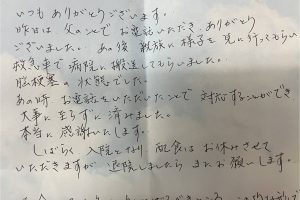 いつも ありがとうございます。
昨日は 父のことで お電話いただき、ありがとう
ございました。あの後 親族に 様子を 見に行ってもらい
救急車で 病院に 搬送してもらいました。
脳梗塞の 状態でした。
あの時 お電話をいただいたことで 対応することができ
大事に 至らずに 済みました。
本当に 感謝いたします。
しばらく 入院となり、配食は お休みさせて
いただきますが 退院しましたら またお願いします。